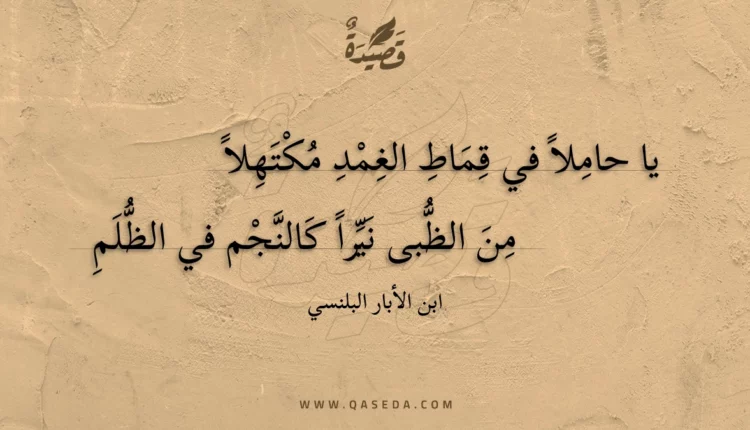 قَصِيْدَةٌ
يا حامِلاً في قِمَاطِ الغِمْدِ مُكْتَهِلاً
مِنَ الظُّبى نَيِّراً كَالنَّجْم في الظُّلَمِ
ابن الأبار البلنسي
WWW.QASEDA.COM